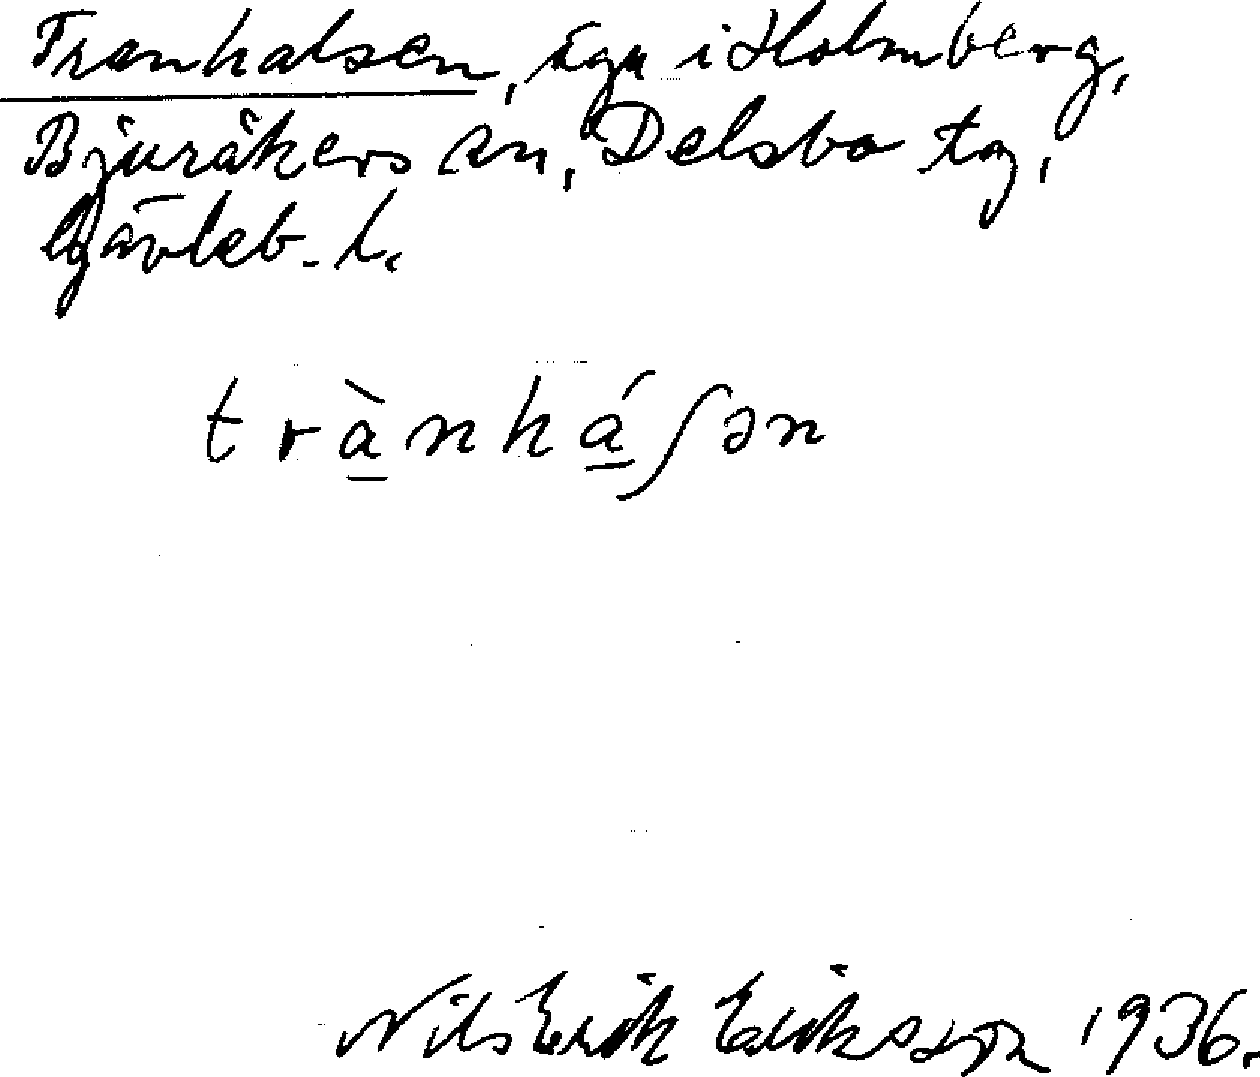 Tranhalsen, äga i Holmberg,
Bjuråkers sn, Delsbo tg,
Gävleb. l.
trànháʃən
Nils Erik Eriksson 1936.